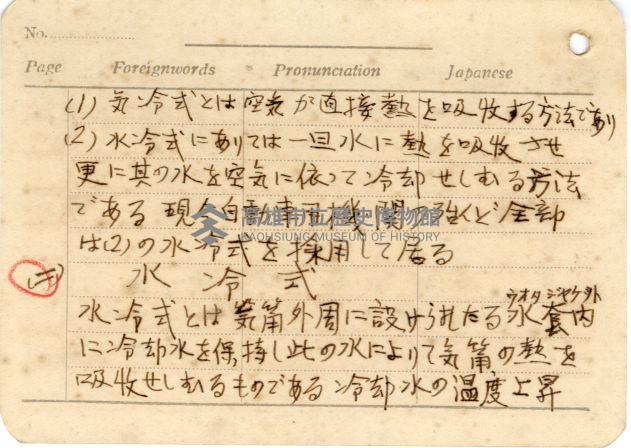 No.
Page Foreignwords Pronunciation Japanese
(1) 気冷式とは空気が直接熱を吸收する方法であり
(2) 水冷式にありては一旦水に熱を吸收させ
更に其の水を空気に依って冷却せしむる方法
である 現今自動車用機関は殆んど全部
は(2)の水冷式を採用して居る
高雄市立歷史博物館
KAOHSIUNG MUSEUM OF HISTORY
水冷式
ウオタジャケット
水冷式とは気筩外周に設けられたる水套内
に冷却水を保持し此の水によりて気筩の熱を
吸收せしむるものである 冷却水の温度上昇